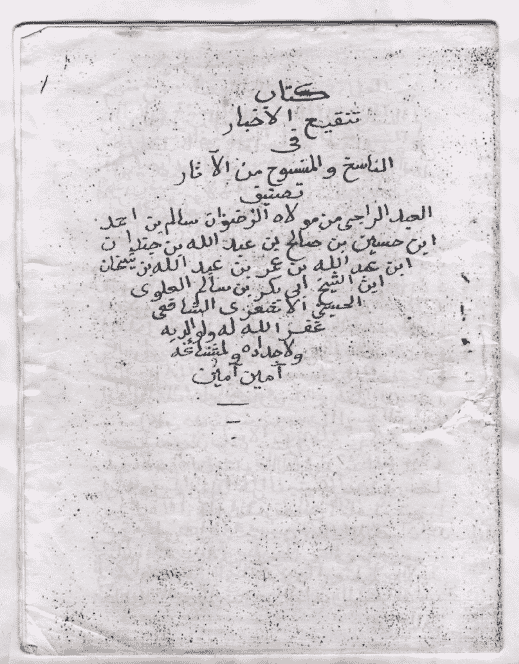 كتاب
تنقيح الاخبار
فى
الناسخ والمنسوخ من الآثار
تصنيف
العبد الراجى من مولاه الرضوان سالم بن احمد
ابن حسين بن صالح بن عبد الله بن جندان
ابن عبد الله بن عمر بن عبد الله بن شيخان
ابن الشيخ ابى بكر بن سالم العلوى
الحسينى الاشعرى الشافعى
غفر الله له ولوالديه
ولاجداده ولمشائخه
آمين آمين